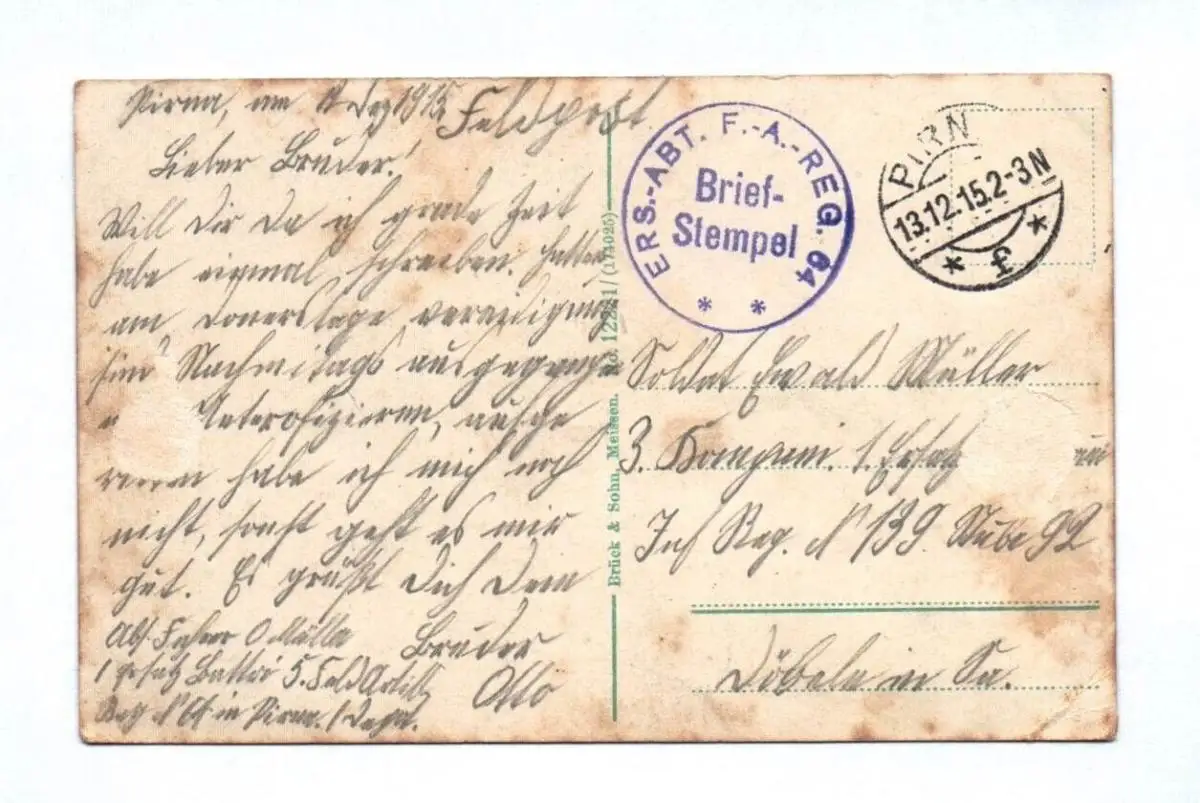 Pirna, am Dez 1915
Feldpost
Lieber Bruder!
Will Dir da ich grade Zeit
habe einmal schreiben. Hatten
am Donerstage vereidigung
sind Nachmitags ausgegangen
Unterofizieren, ausge
habe ich mich noch
nicht, sonst geht es mir
gut. Es grüßt Dich Dein
Bruder
Otto
Abs. Fahrer O Müller
1 Ersatz Battri 5. Feld Artill
Reg N 64 in Pirna.
Brück & Sohn, Meissen. No. 12221/(174025)
ERS.-ABT. F.-A.-REG. 64
Brief-
Stempel
* *
PIRN
13.12.15.2-3N
* f *
Soldat Ewald Müller
3. Kompani. 1. Ersatz
Inf Reg. N 139. Stube 92
Döbeln in Sa.